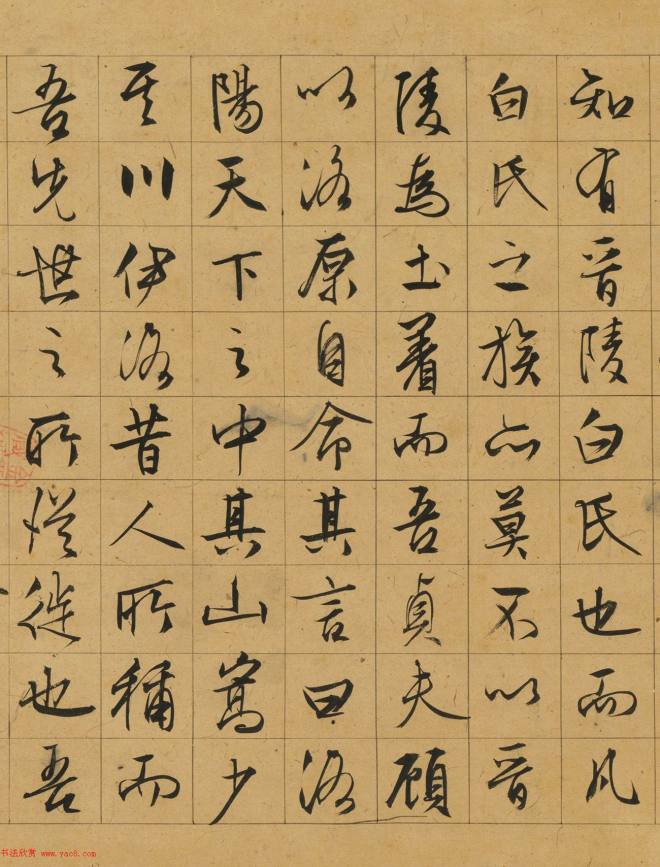 知有晋陵白氏也而凡
白氏之族亦莫不以晋
陵為土著而吾貞夫顧
以洛原自命其言曰洛
陽天下之中其山嵩少
其川伊洛昔人所稱而
吾先世之所從徙也吾
书法欣赏 www.yac8.com